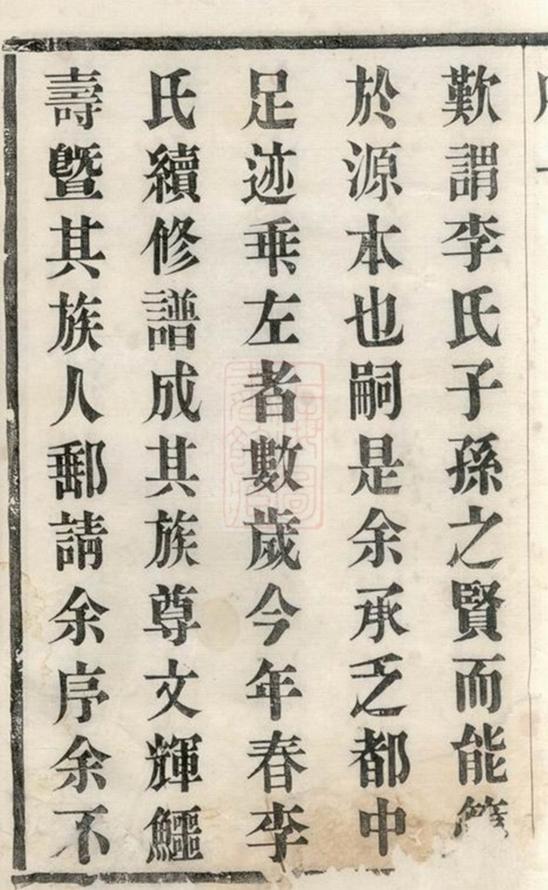 歎謂李氏子孫之賢而能
於源本也嗣是余承乏都中
足迹乗左者數歲今年春李
氏續修譜成其族尊文輝鱷
壽曁其族人郵請余序余不